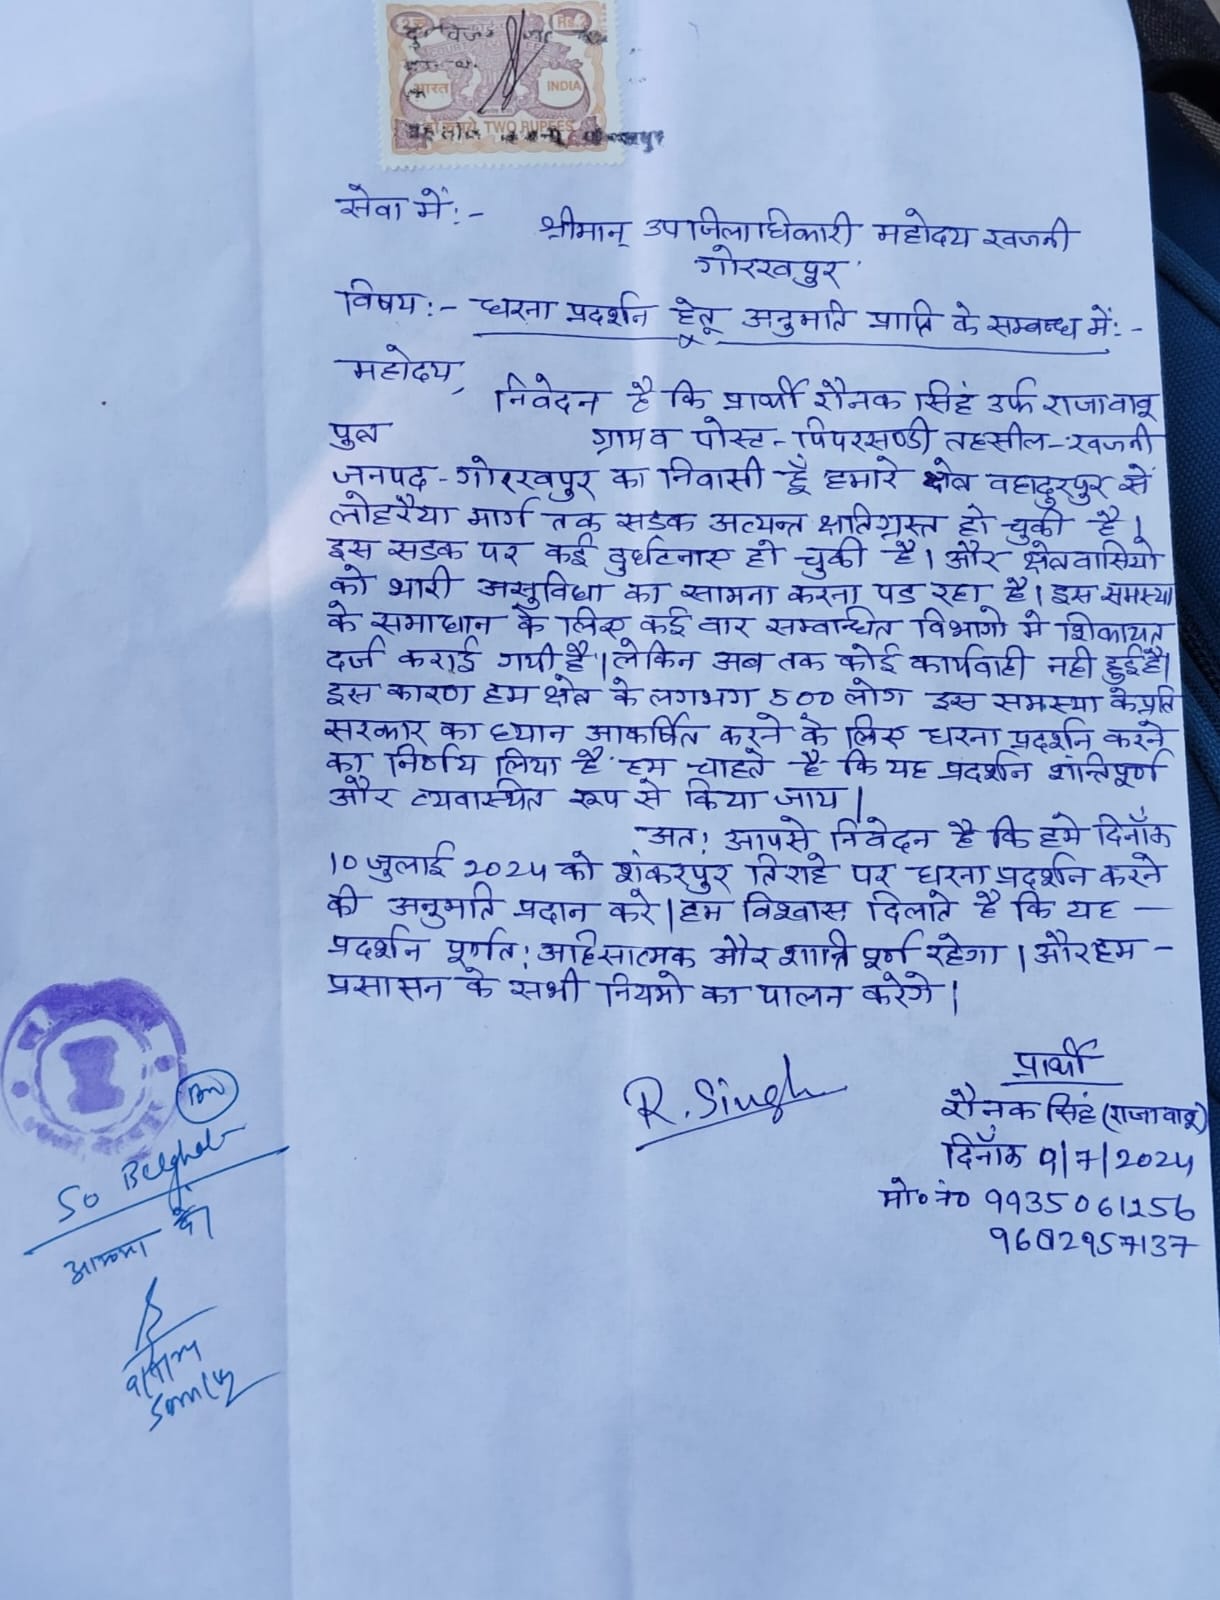 COURT FEE
भारत
INDIA
TWO RUPEES
सेवा में:-
श्रीमान् उपजिलाधिकारी महोदय खजनी
गोरखपुर
विषय:- धरना प्रदर्शन हेतू अनुमति प्राप्ति के सम्बन्ध में:-
महोदय,
निवेदन है कि प्रार्थी रौनक सिहं उर्फ राजाबाबू
पुत्र ग्राम व पोस्ट-पिपरसण्डी तहसील-खजनी
जनपद-गोरखपुर का निवासी हूँ हमारे क्षेत्र बहादुरपुर से
लोहरैया मार्ग तक सडक अत्यन्त क्षतिग्रस्त हो चुकी है।
इस सडक पर कई दुर्घटनाए हो चुकी है। और क्षेत्रवासियो
को भारी असुविधा का सामना करना पड रहा है। इस समस्या
के समाधान के लिए कई बार सम्बन्धित विभागो मे शिकायत
दर्ज कराई गयी है। लेकिन अब तक कोई कार्यवाही नही हुई है।
इस कारण हम क्षेत्र के लगभग 500 लोग इस समस्या के प्रति
सरकार का ध्यान आकर्षित करने के लिए धरना प्रदर्शन करने
का निर्णय लिया है हम चाहते है कि यह प्रदर्शन शान्तिपूर्ण
और व्यवस्थित रूप से किया जाय।
अत: आपसे निवेदन है कि हमे दिनाँक
10 जुलाई 2024 को शंकरपुर तिराहे पर धरना प्रदर्शन करने
की अनुमति प्रदान करे। हम विश्वास दिलाते है कि यह —
प्रदर्शन पूर्णत: अहिसात्मक और शान्ति पूर्ण रहेगा। और हम —
प्रसासन के सभी नियमो का पालन करेगे।
प्रार्थी
R. Singh
रौनक सिहं (राजाबाबू)
दिनाँक 9/7/2024
मो० नं० 9935061256
So Belghat